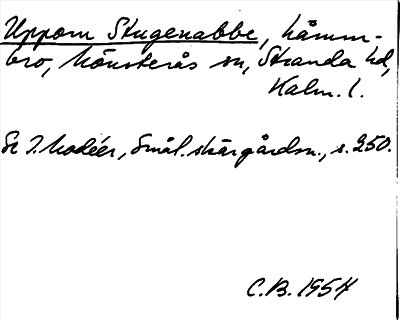 Uppom Stugenabbe, Låmm-
bro, Mönsterås sn, Stranda hd,
Kalm. l.
Se I. Modéer, Smål. skärgårdsn., s. 250.
C.B. 1954